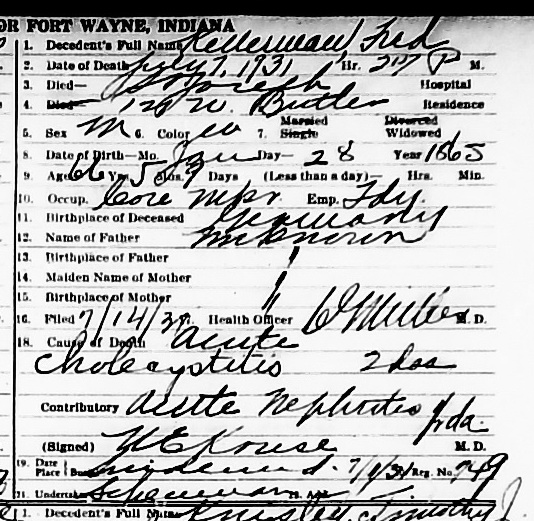 OR FORT WAYNE, INDIANA
1. Decedent's Full Name Kellerman Fred
2. Date of Death July 7, 1931 Hr. 217 P M.
3. Died— St Joseph Hospital
4. Died— 120 W. Butler Residence
5. Sex M 6. Color W 7. Married Single Divorced Widowed
8. Date of Birth—Mo. Jan Day— 28 Year 1865
9. Age 66 Yrs. 5 Mos. 9 Days (Less than a day)— Hrs. Min.
10. Occup. Core Mkr. Emp. Fdy.
11. Birthplace of Deceased Germany
12. Name of Father Unknown
13. Birthplace of Father "
14. Maiden Name of Mother "
15. Birthplace of Mother "
16. Filed 7/14/31 Health Officer Miller M. D.
18. Cause of Death Acute
Cholecystitis 2 das
Contributory Acute Nephrites da
(Signed) M. D.
19. Date Place Lindenwood. Reg. No. 749
21. Undertaker
1. Decedent's Full Name Timothy J.